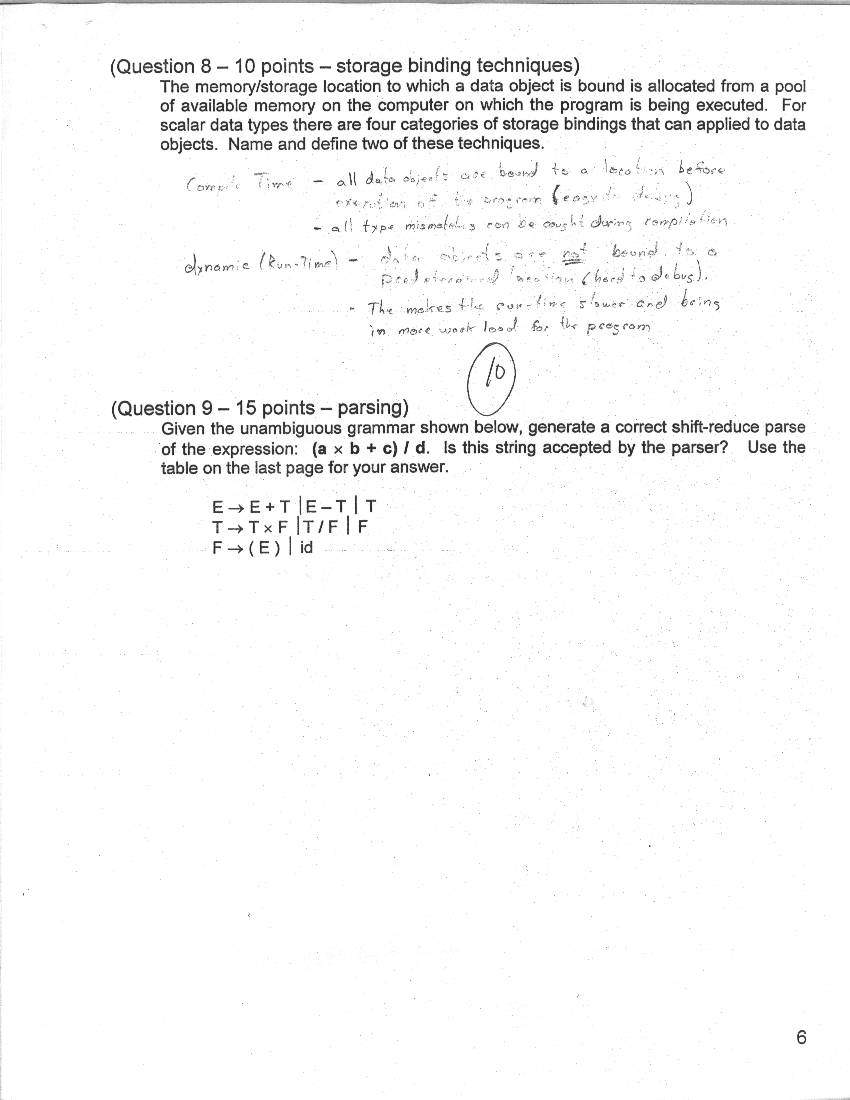 (Question 8 – 10 points – storage binding techniques)
The memory/storage location to which a data object is bound is allocated from a pool
of available memory on the computer on which the program is being executed. For
scalar data types there are four categories of storage bindings that can applied to data
objects. Name and define two of these techniques.
Compile Time - all data objects are bound to a location before
execution of the program (easy to debug)
- all type mismatches can be caught during compilation
dynamic (Run-Time) - data objects are not bound to a
predetermined location (hard to debug).
- The makes the run-time slower and being
in more work load for the program
10
(Question 9 – 15 points – parsing)
Given the unambiguous grammar shown below, generate a correct shift-reduce parse
of the expression: (a × b + c) / d. Is this string accepted by the parser? Use the
table on the last page for your answer.
E → E + T | E – T | T
T → T × F | T / F | F
F → ( E ) | id
6